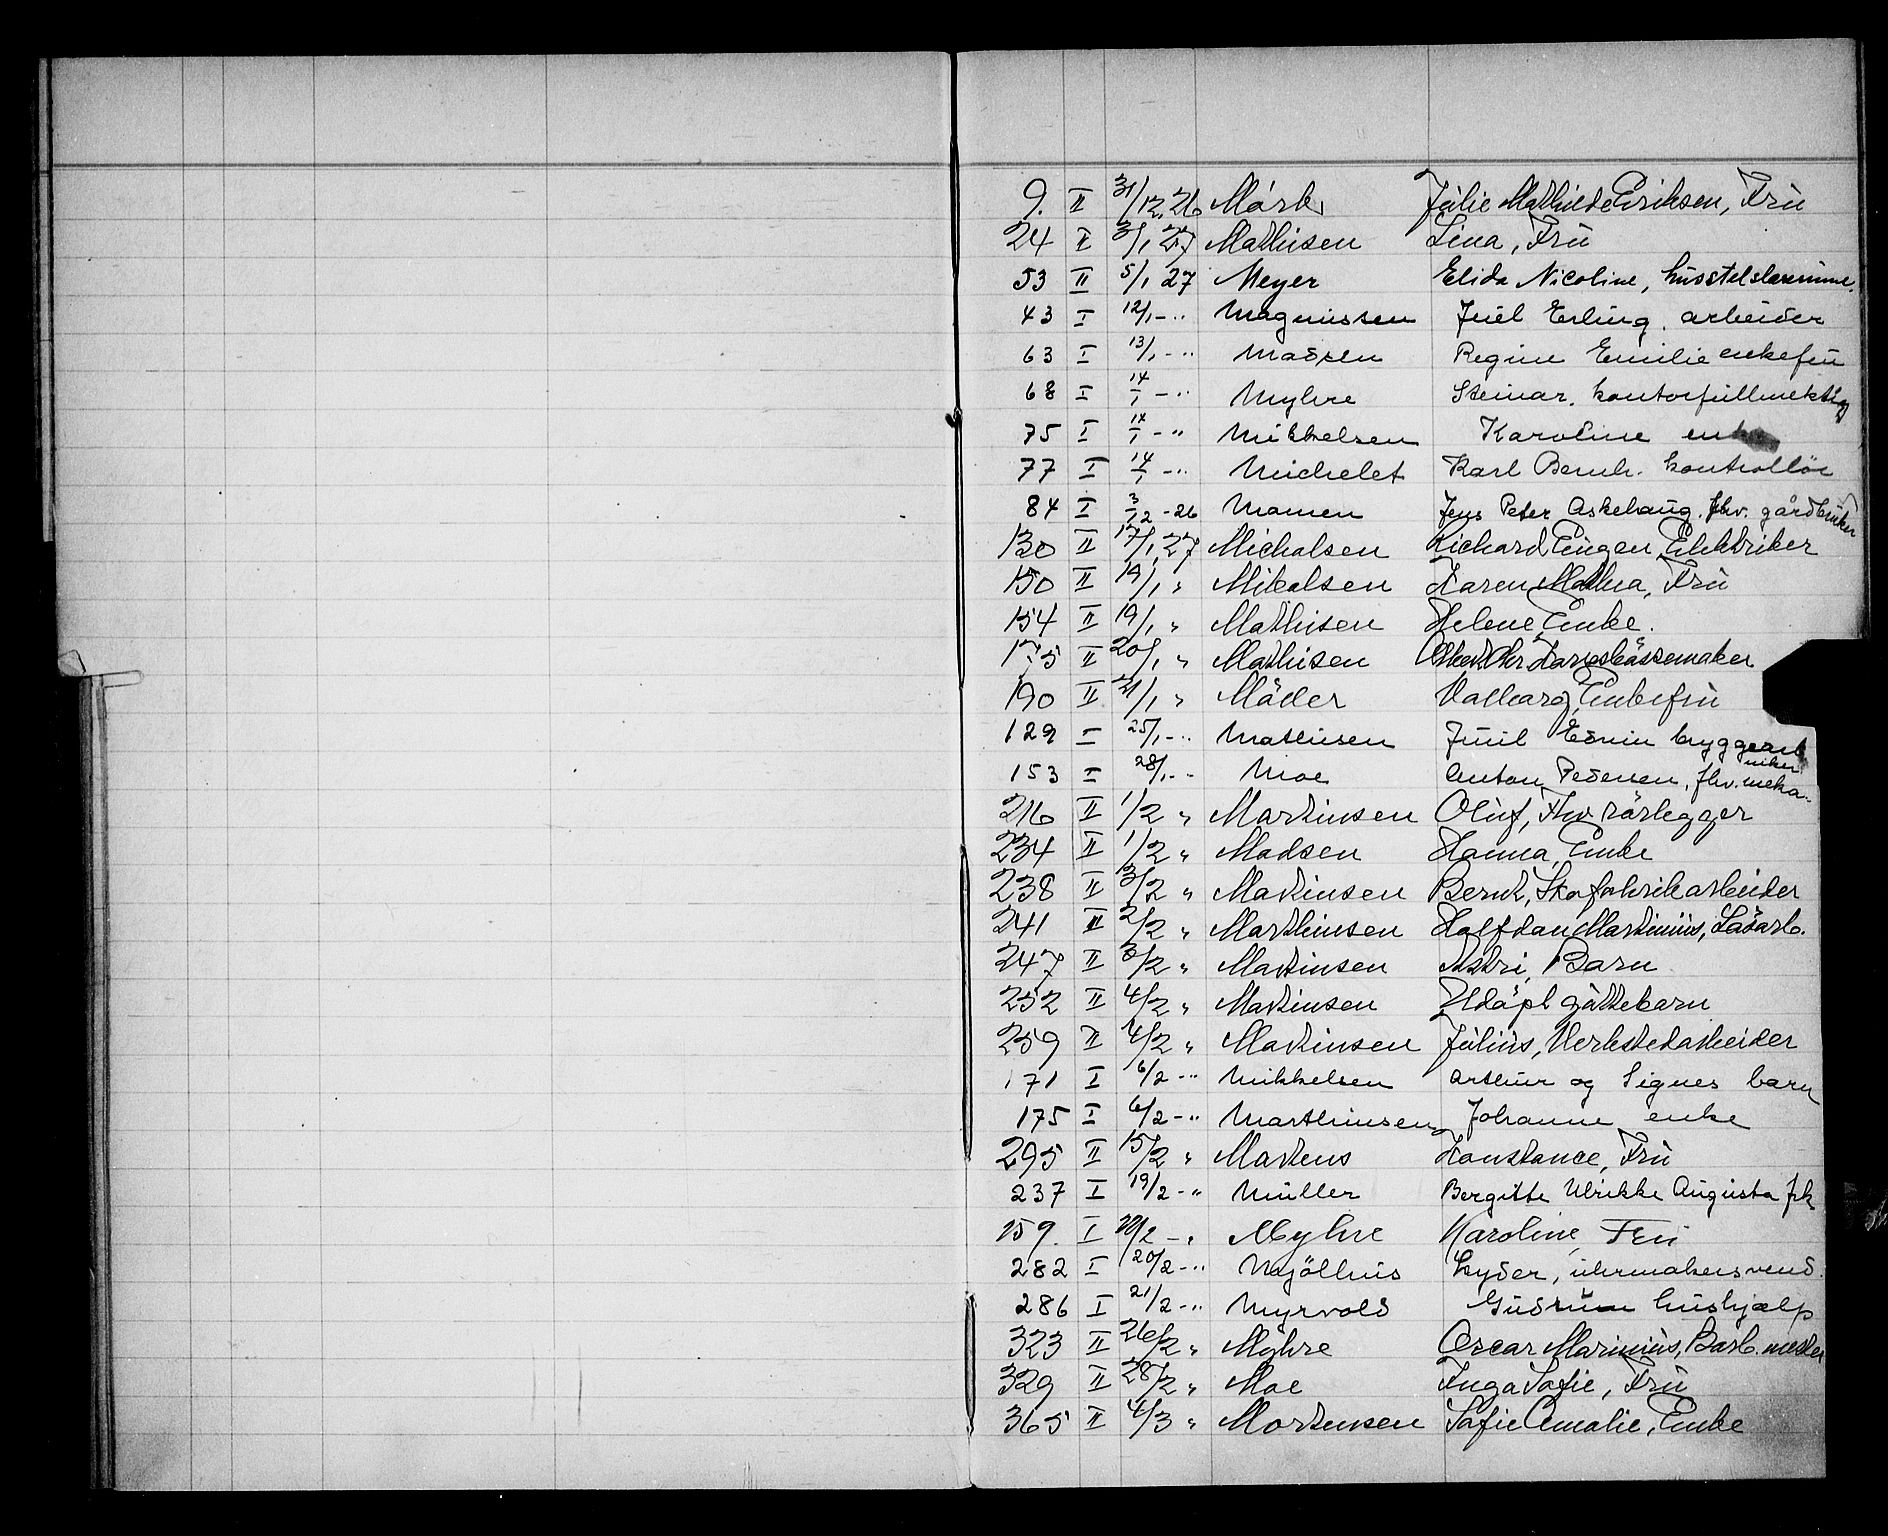 9. II 31/12 26 Mørk Julie Mathilde Eriksen, Fru
24 I 3/1 27 Mathisen Lina, Fru
53 II 5/1 27 Meyer Elida Nicoline, husstelslærerinne.
43 I 12/1 - " Magnussen Juel Erling. arbeider
63 I 13/1 - " Madsen Regine Emilie enkefru
68 I 14/1 - " Myhre Steinar. kontorfullmektig
75 I 14/1 - " Mikkelsen Karoline enke
77 I 14/1 - " Michelet Karl Bernh. kontrollör
84 I 3/12 - 26 Mamen Jens Peter Askehaug. fhv. gårdbruker
130 II 17/1 27 Michalsen Richard Eugen, Elektriker
150 II 19/1 " Mikalsen Karen Mathea, Fru
154 II 19/1 " Mathisen Helene, Enke.
175 II 20/1 " Mathisen Chr
190 II 21/1 " Möller Valborg, Enkefru
129 I 25/1 - " Mathisen Juul Edvin bryggearb
153 I 28/1 - " Moe Anton Pedersen, fhv. mekaniker
216 II 1/2 " Martinsen Oluf, Fhv. rörlegger
234 II 1/2 " Madsen Hanna, Enke
238 II 3/2 " Martinsen Bernt, Skofabrikarbeider
241 II 2/2 " Marthinsen Halfdan Martinius, Lösarb.
247 II 3/2 " Martinsen Astri, Barn
252 II 4/2 " Martinsen Udöpt guttebarn
259 II 4/2 " Martinsen Julius, Verkstedarbeider
171 I 6/2 - " Mikkelsen Arthur og Signes barn
175 I 6/2 - " Marthinsen Johanne enke
295 II 15/2 " Martens Konstance, Fru
237 I 19/2 - " Müller Bergitte Ulrikke Augusta frk
259. I 20/2 - " Myhre Karoline, Fru
282 I 20/2 - " Mjölhus Lyder, uhrmakersvend.
286 I 21/2 - " Myrvold Gudrun hushjælp
323 II 26/2 " Myhre Oscar Marinius, Barb. mester
329 II 28/2 " Moe Inga Sofie, Fru
365 II 4/3 " Mortensen Sofie Amalie, Enke